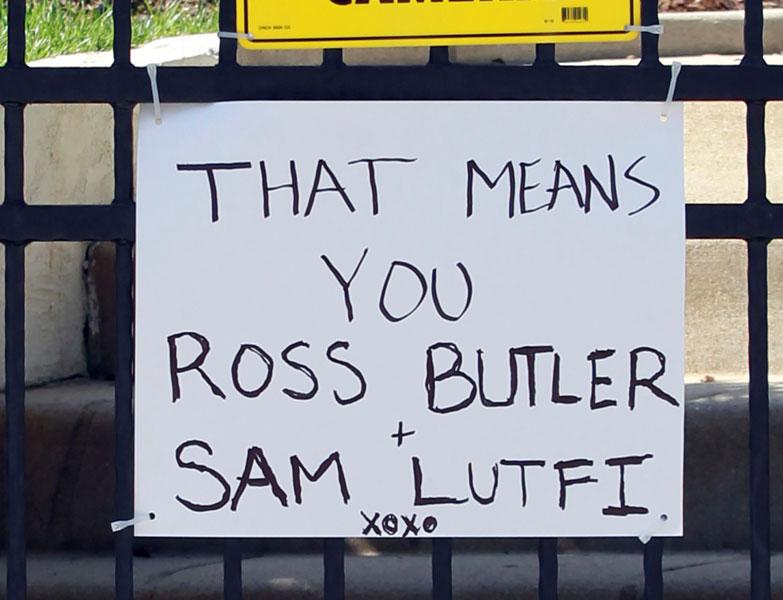 THAT MEANS
YOU
ROSS BUTLER
+
SAM LUTFI
XOXO